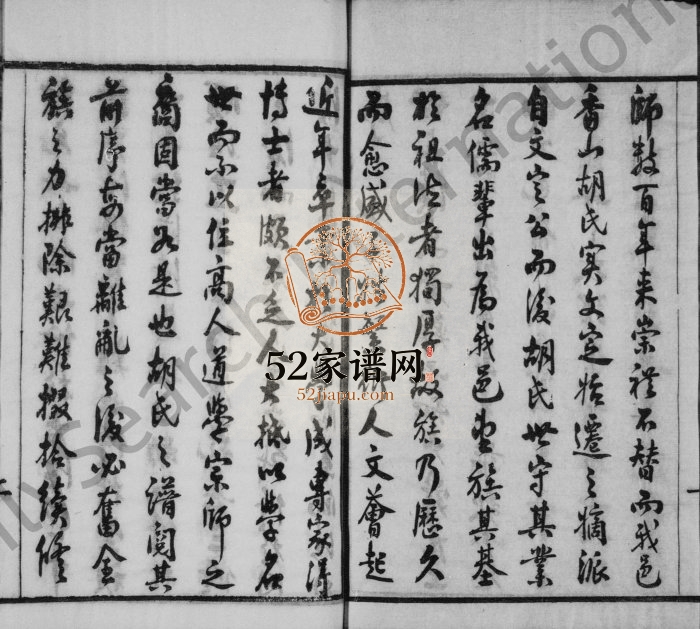 師數百年来崇祀不替而我邑
香山胡氏實文定始遷之嫡派
自文定公而後胡氏世守其業
名儒輩出為我邑望族其基
於祖法者獨厚故族乃歷久
而愈盛 人文薈起
近年卒業大學成專家得
博士者頗不乏人大抵以學名
世而不以仕高人道學宗師之
裔固當如是也胡氏之譜閱其
前序每當離亂之後必奮全
族之力排除艱難掇拾續修
52家谱网
52jiapu.com
Search International